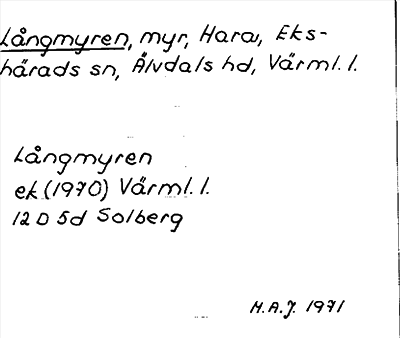 Långmyren, myr, Hara, Eks-
härads sn, Älvdals hd, Värml. l.
Långmyren
ek (1970) Värml. l.
12 D 5d Solberg
M.A.J. 1971